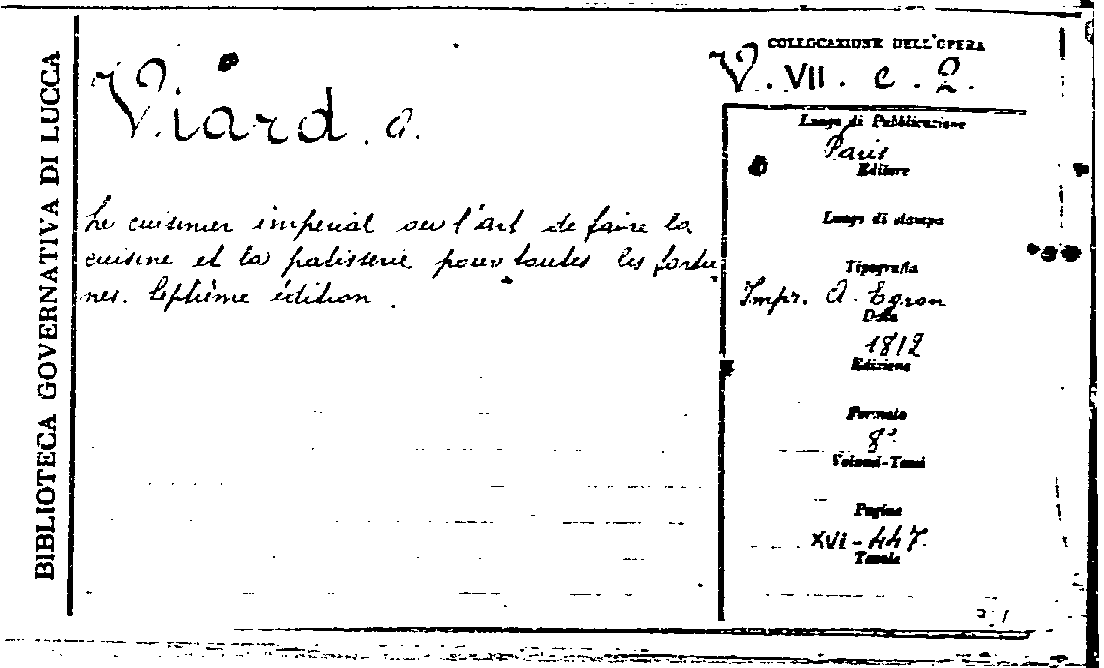 BIBLIOTECA GOVERNATIVA DI LUCCA
Viard. a.
Le cuisinier impérial ou l'art de faire la
cuisine et la patisserie pour toutes les fortu
nes. Septième édition.
COLLOCAZIONE DELL'OPERA
V. VII. c. 2.
Luogo di Pubblicazione
Paris
Editore
Luogo di stampa
Tipografia
Impr. A. Egron
Data
1812
Edizione
Formato
8°
Volumi-Tomi
Pagine
XVI-447.
Tavole